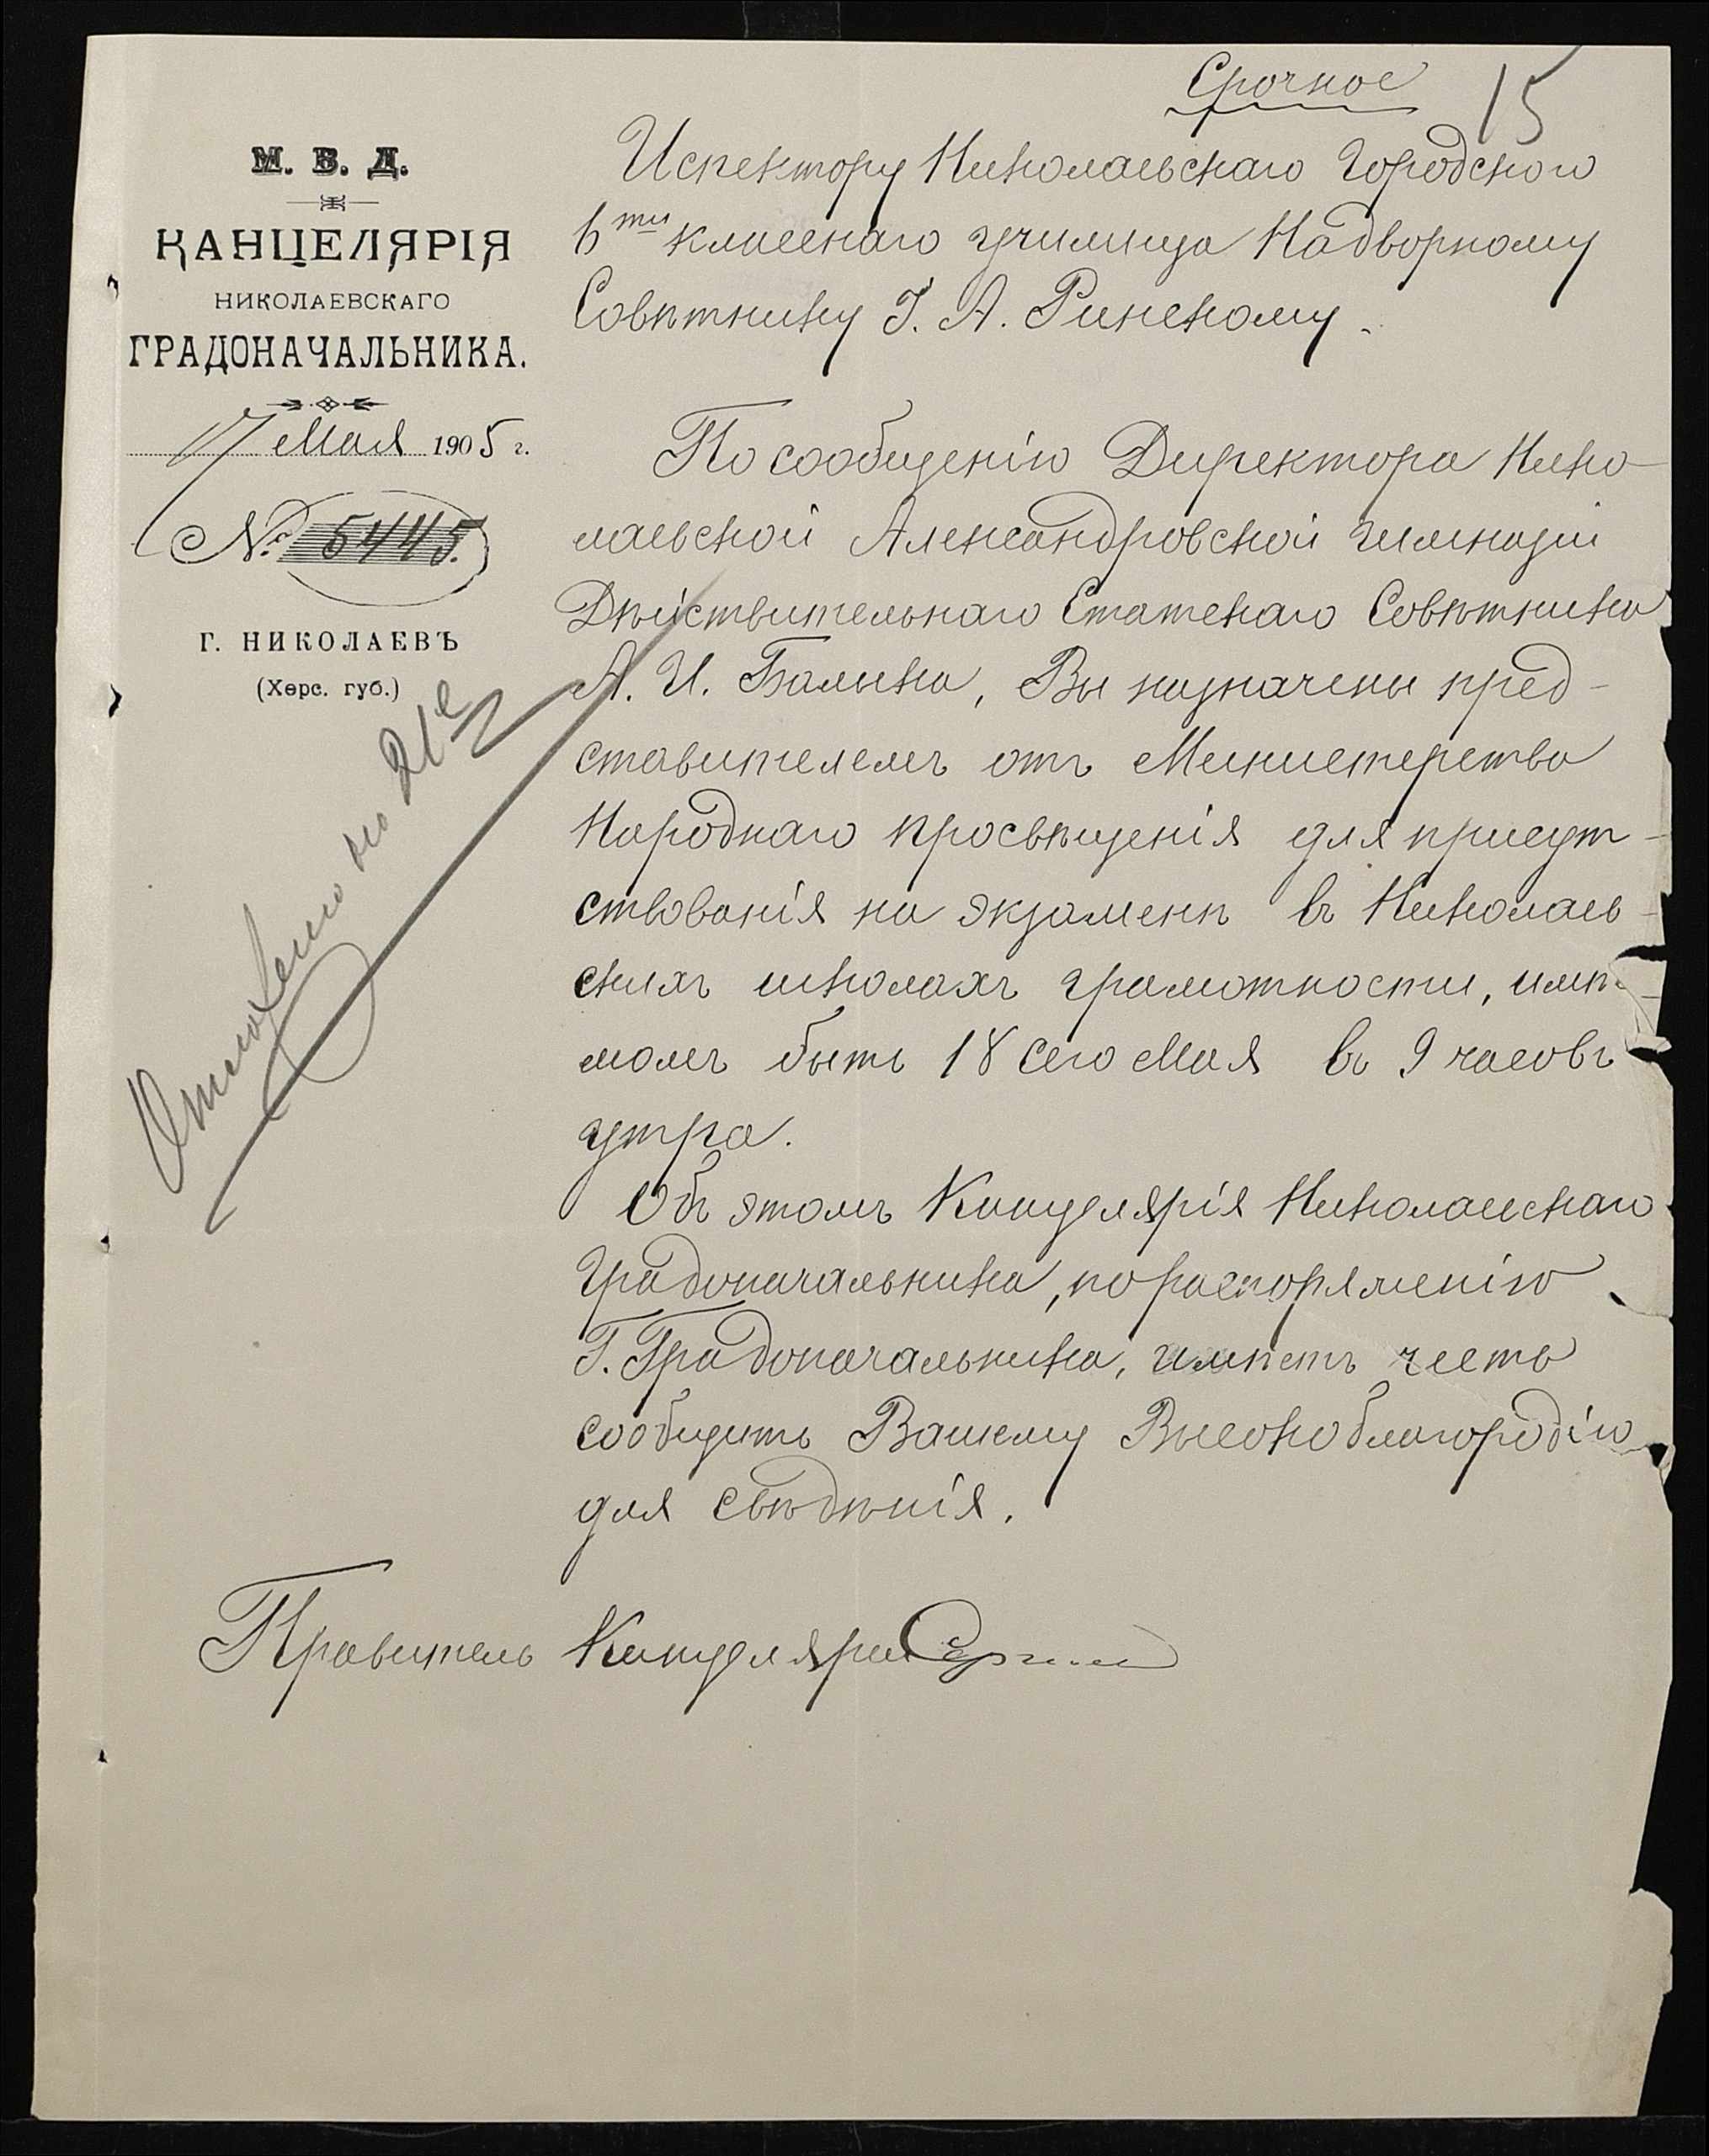 Срочное
15
М. В. Д.
КАНЦЕЛЯРІЯ
НИКОЛАЕВСКАГО
ГРАДОНАЧАЛЬНИКА.
17 Мая 1905 г.
№ 5445.
Г. НИКОЛАЕВЪ
(Херс. губ.)
Отложено на 21е
Испектору Николаевскаго Городского
6ти класснаго училища Надворному
Совѣтнику Г. А. Ринскому.
По сообщенію Директора Нико-
лаевской Александровской гимназіи
Дѣйствительнаго Статскаго Совѣтника
А. И. Балыка, Вы назначены пред-
ставителемъ отъ Министерства
Народнаго просвѣщенія для присут-
ствованія на экзаменѣ въ Николаев-
скихъ школахъ грамотности, имѣ-
ющемъ быть 18 сего Мая въ 9 часовъ
утра.
Объ этомъ Канцелярія Николаевскаго
Градоначальника, по распоряженію
Г. Градоначальника, имѣетъ честь
сообщить Вашему Высокоблагородію
для свѣдѣнія.
Правитель Канцеляріи